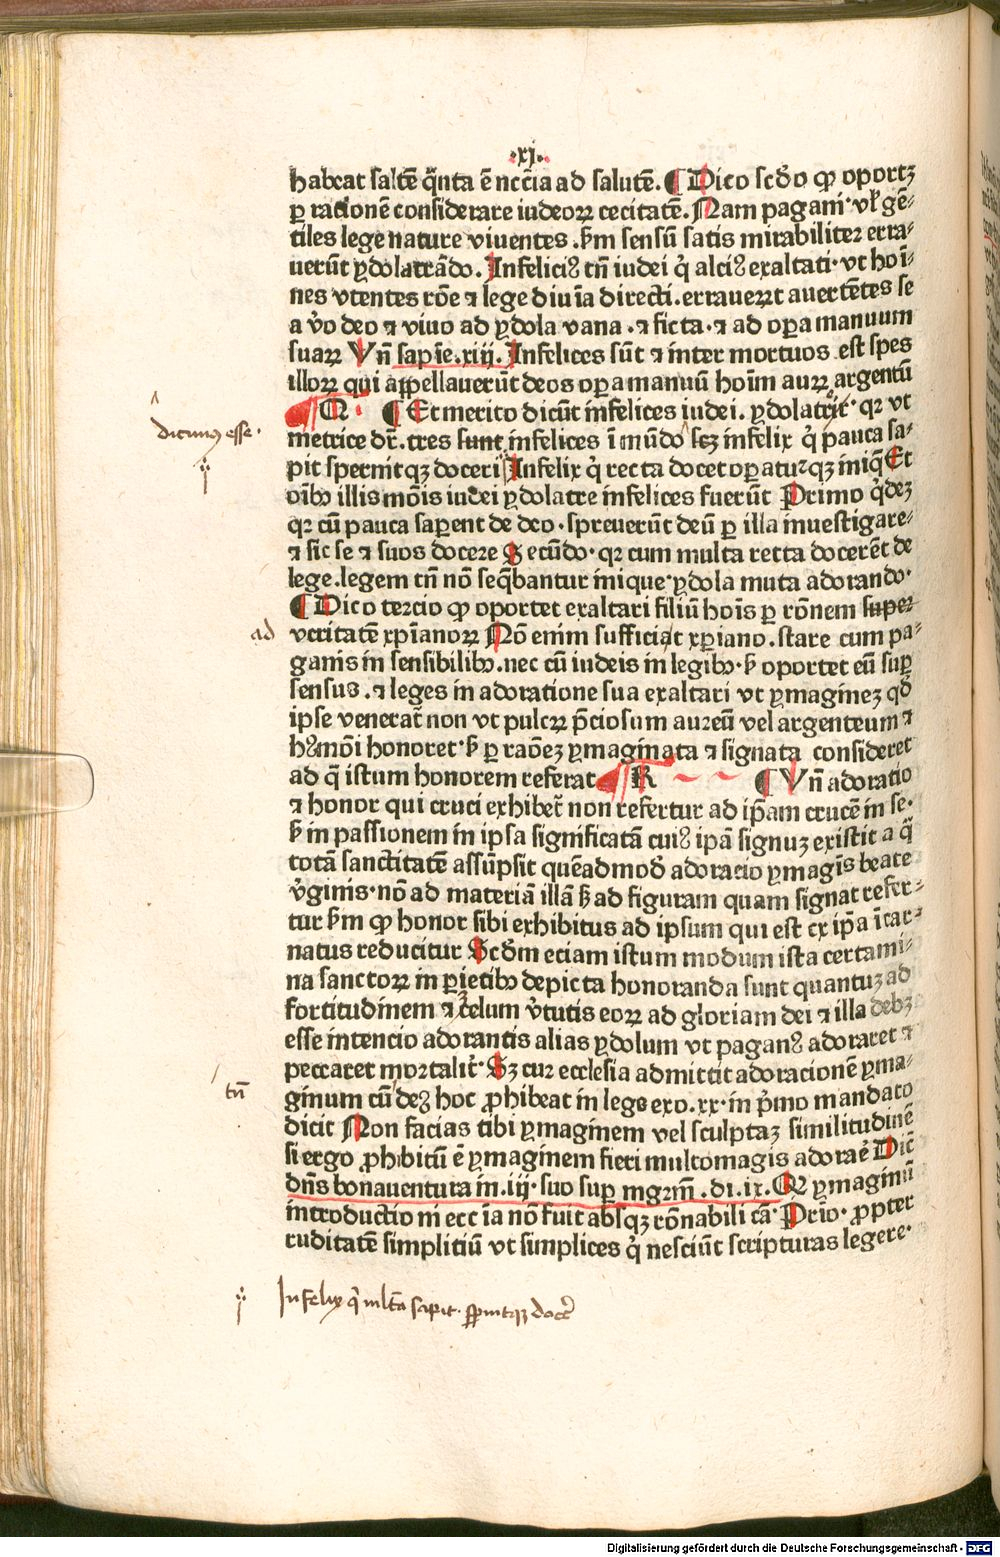 .xj.
habeat saltē q̄nta ē nccīa ad salutē. ¶ Dico scd̄o ꝙ oportꝫ
ꝑ racionē considerare iudeoꝝ cecitatē. Nam pagani· vł gē⸗
tiles lege nature viventes .ẜm sensū satis mirabiliter erra⸗
uerūt ydolatrādo. Infelicī tn̄ iudei q̇ alcī exaltati· vt hoī⸗
nes vtentes rōe ⁊ lege diuīa directi .errauerꝝt auertētes se
a v̇o deo ⁊ vivo ad ydola vana .⁊ ficta .⁊ ad oꝑa manuum
suaꝝ Vn̄ sapīe .xiij. Infelices sūt ⁊ inter mortuos est spes
illoꝝ qui appellauerūt deos oꝑa manuū hoīm auꝝ argentū
¶ Q ¶ Et merito dicūt infelices iudei. ydolatrīt· qꝛ vt
metrice dr̄ .tres sunt infelices ī mūdo scꝫ infelix q̇ pauca sa⸗
dicimus esse·
pit spernitqꝫ doceri Infelix q̇ recta docet oꝑaturqꝫ iniq̄ Et
oībꝫ illis mōis iudei ydolatre infelices fuerūt Primo q̇deꝫ
qꝛ cū pauca saꝑent de deo · spreuerūt deū ꝑ illa inuestigare⸗
⁊ sic se ⁊ suos docere Secūdo· qꝛ cum multa recta docerēt de
lege .legem tn̄ nō seq̄bantur inique· ydola muta adorando·
¶ Dico tercio ꝙ oportet exaltari filiū hoīs ꝑ rōnem super
ad
veritatē xp̄ianoꝝ Nō enim sufficiat xp̄iano .stare cum pa⸗
ganis in sensibilibꝫ .nec cū iudeis in legibꝫ .ẜ oportet eū suꝑ
sensus .⁊ leges in adoratione sua exaltari vt ymagineꝫ qd̄
ipse venerat̄ non vt pulcꝝ p̄ciosum aureū vel argenteum ⁊
hꝰmōi honoret .ẜ ꝑ raōeꝫ ymaginata ⁊ signata consideret
ad q̄ istum honorem referat ¶ R ¶ Vn̄ adoratio
⁊ honor qui cruci exhibet̄ non refertur ad ip̄am crucē in se·
ẜ in passionem in ipsa significatā cuiꝰ ipā signuꝫ existit a q̄
totā sanctitatē assūpsit quēadmod̄ adoracio ymagīs beate
v̇ginis· nō ad materiā illā ẜ ad figuram quam signat refer⸗
tur ẜm ꝙ honor sibi exhibitus ad ipsum qui est ex ip̄a īcar⸗
natus reducitur Scd̄m eciam istum modum ista certami⸗
na sanctoꝝ in ꝑietibꝫ depicta honoranda sunt quantuꝫ ad
fortitudinem ⁊ zelum v̇tutis eoꝝ ad gloriam dei ⁊ illa debꝫ
esse intencio adorantis alias ydolum vt paganꝰ adoraret ⁊
peccaret mortalit̄· Sꝫ cur ecclesia admittit adoracionē yma⸗
tn̄
ginum cū deꝰ hoc ꝓhibeat in lege exo .xx· in p̄mo mandato
dicit Non facias tibi ymaginem vel sculptaꝫ similitudinē
si ergo ꝓhibitū ē ymaginem fieri multomagis adoraē Dic̄
dn̄s bonauentura in .iij· suo suꝑ mgr̄m̄ .di.ix. Q ymaginū
introductio in eccīa nō fuit absqꝫ rōnabili cā· Prīo· ꝓpter
ruditatē simplitiū vt simplices q̇ nesciūt scripturas legere·
Infelix q̇ mlta sapit· spernitqꝫ docē
Digitalisierung gefördert durch die Deutsche Forschungsgemeinschaft - DFG